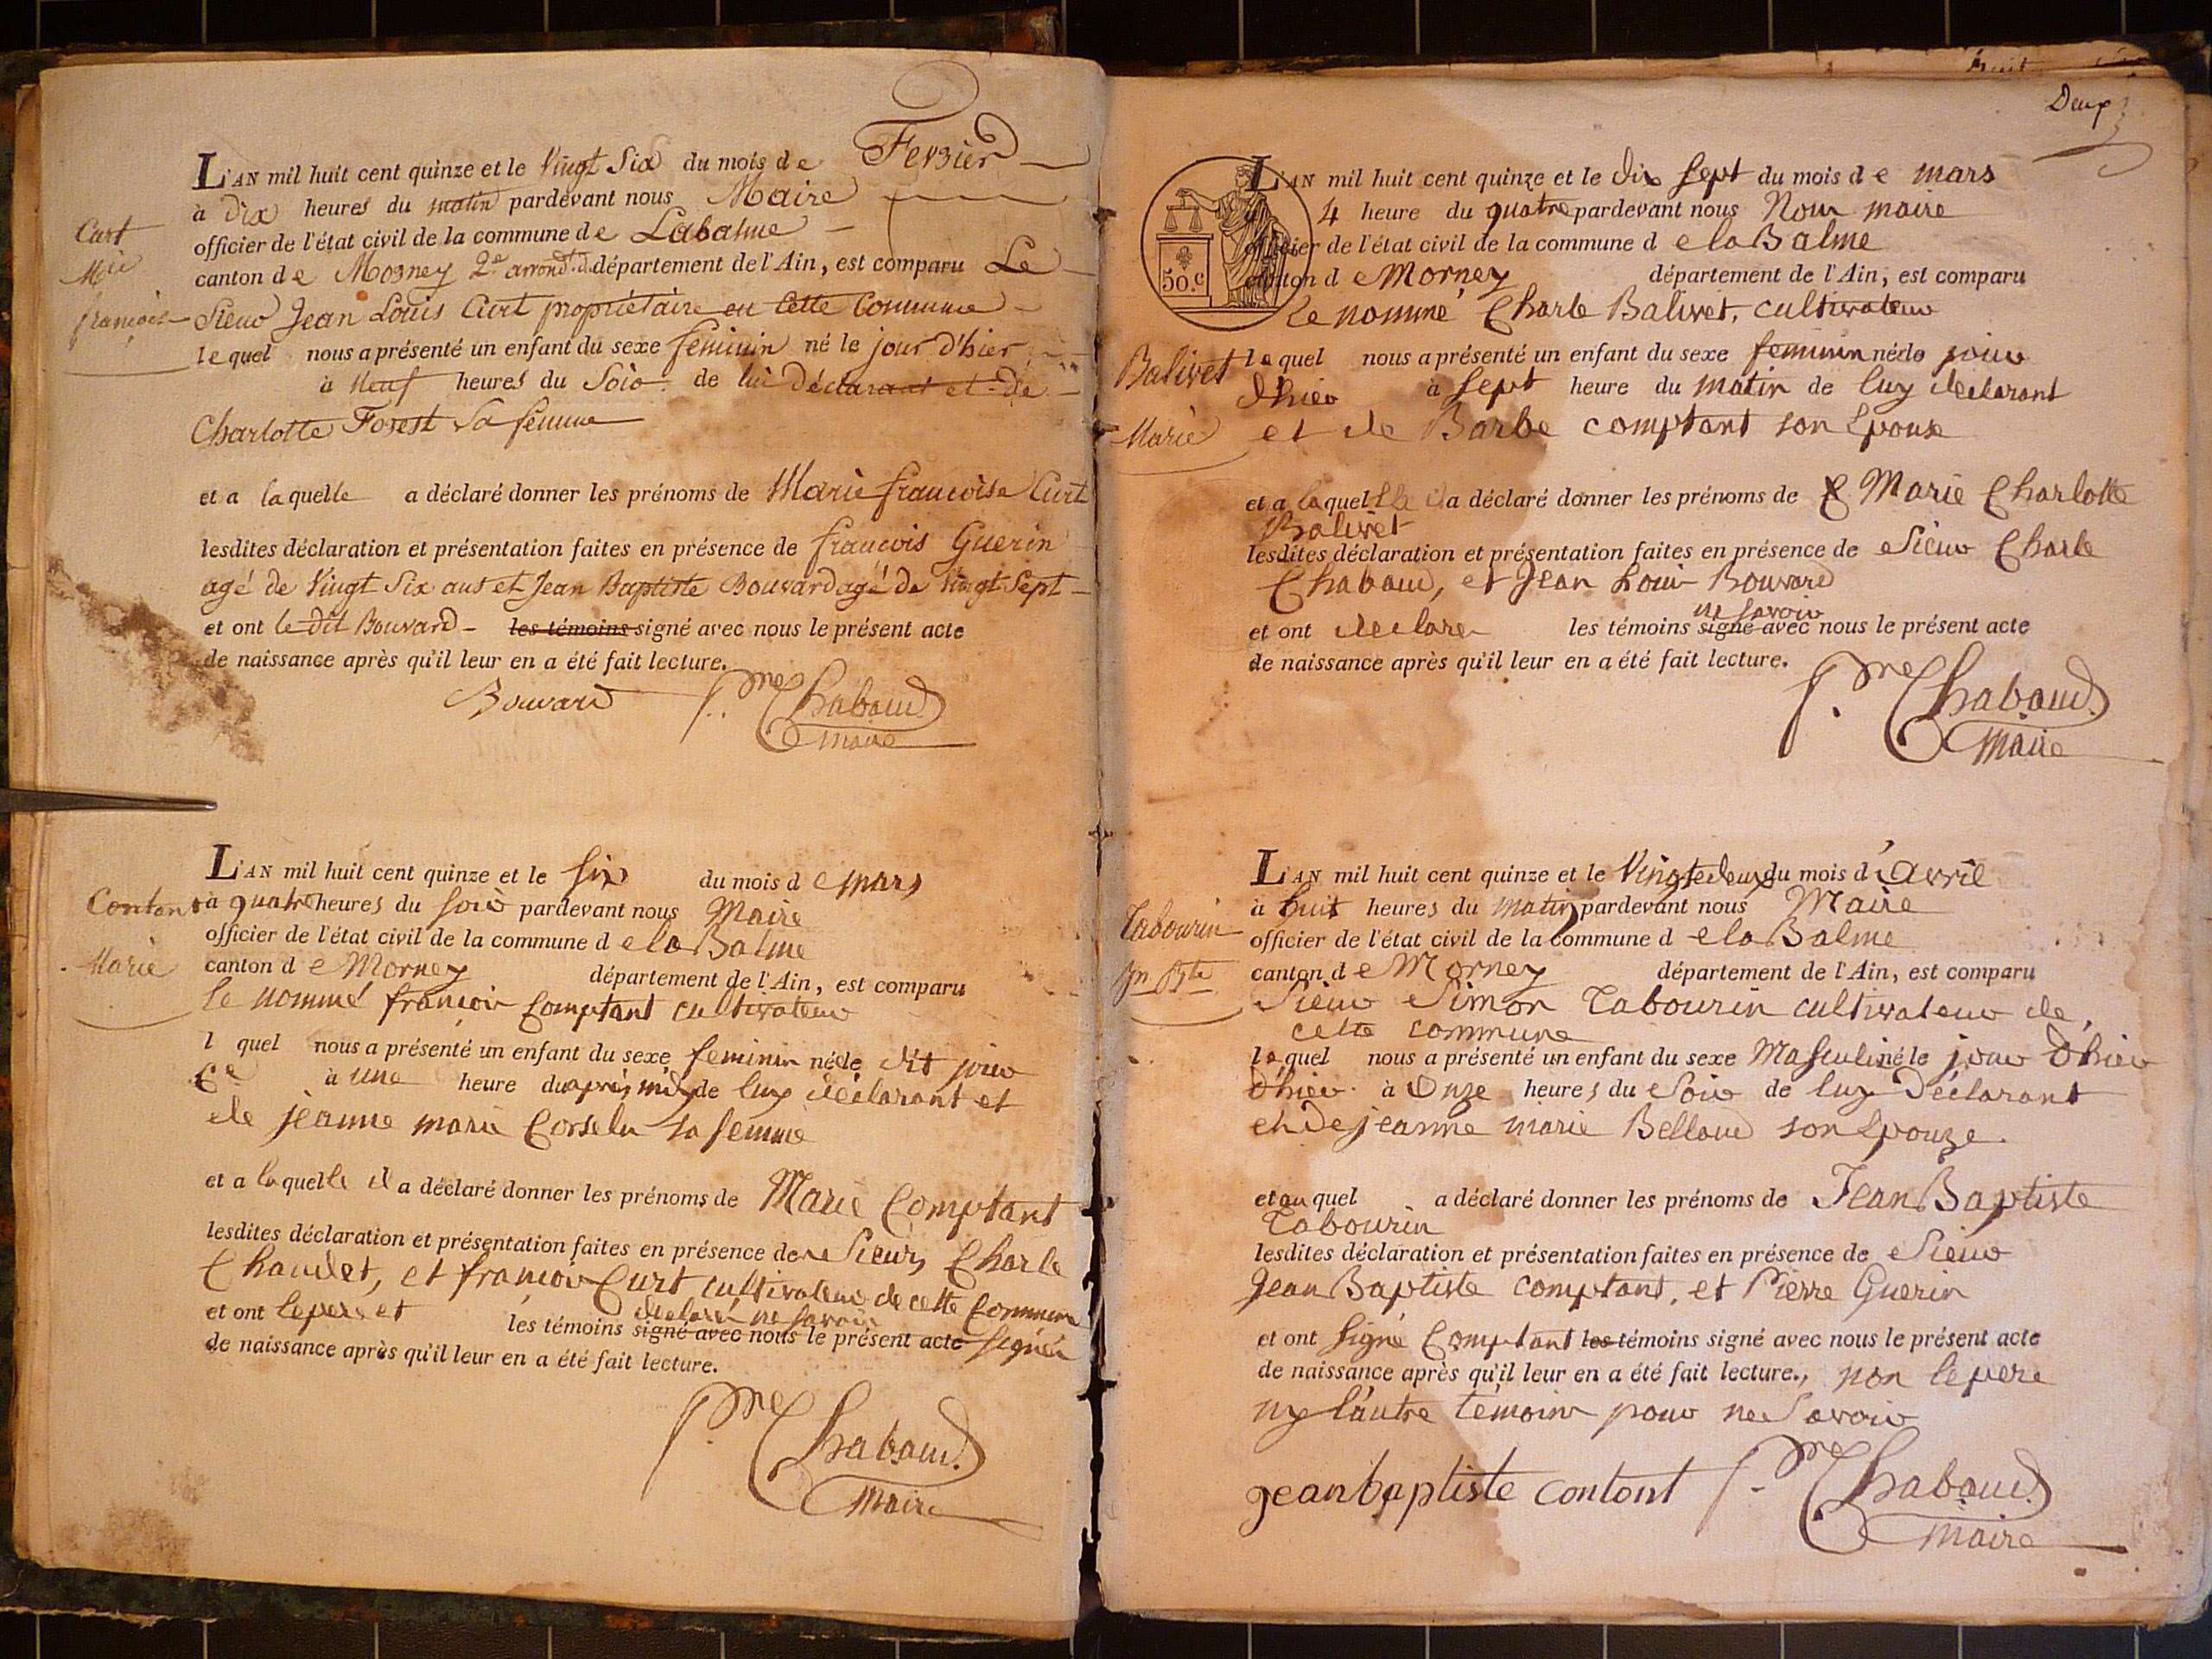 L'AN mil huit cent quinze et le Vingt Six du mois de Fevrier
à Dix heures du matin pardevant nous Maire
officier de l'état civil de la commune de Labalme
canton de Morney 2e arrondt. département de l'Ain, est comparu Le
Sieur Jean Louis Curt propriétaire en Cette Commune
Curt
Mie
françoise
lequel nous a présenté un enfant du sexe feminin né le jour d'hier
à Neuf heures du Soir de lui Déclarant et de
Charlotte Forest Sa femme
et a laquelle a déclaré donner les prénoms de Marie francoise Curt
lesdites déclaration et présentation faites en présence de francois Guerin
agé de Vingt Six ans et Jean Baptiste Bouvard agé de Vingt Sept
et ont le dit Bouvard les témoins signé avec nous le présent acte
de naissance après qu'il leur en a été fait lecture.
Bouvard P.re Chabaud
maire
L'AN mil huit cent quinze et le six du mois de mars
à quatre heures du soir pardevant nous Maire
officier de l'état civil de la commune de la Balme
canton de Morney département de l'Ain, est comparu
le nommé françois Comptant cultivateur
Contant
Marie
lquel nous a présenté un enfant du sexe feminin né le dit jour
Ce à une heure du après midy de luy déclarant et
de jeanne marie Corselu sa femme
et a laquelle il a déclaré donner les prénoms de Marie Comptant
lesdites déclaration et présentation faites en présence de Sieurs Charle
Chaudet, et françois Curt cultivateur de cette Commune
et ont le pere et les témoins signé avec nous le présent acte signér
declaré ne savoir
de naissance après qu'il leur en a été fait lecture.
P.re Chabaud
Maire
Deux
L'AN mil huit cent quinze et le dix sept du mois de mars
4 heure du quatre pardevant nous Nous maire
officier de l'état civil de la commune de la Balme
canton de Morney département de l'Ain, est comparu
50.c
le nommé Charle Balivet, cultivateur
Balivet
Marie
lequel nous a présenté un enfant du sexe feminin né le jour
d'hier à sept heure du matin de luy declarant
et de Barbe comptant son Epouse
et a laquelle il a déclaré donner les prénoms de Marie Charlotte
Balivet
lesdites déclaration et présentation faites en présence de Sieur Charle
Chabaud, et Jean Louis Bouvard
ne savoir
et ont declarer les témoins signé avec nous le présent acte
de naissance après qu'il leur en a été fait lecture.
P.re Chabaud
Maire
L'AN mil huit cent quinze et le Vingtedeux du mois d'avril
à huit heures du matin pardevant nous Maire
officier de l'état civil de la commune de la Balme
canton de Morney département de l'Ain, est comparu
Tabourin
Jn Bte
Sieur Simon Tabourin cultivateur de
cette commune
lequel nous a présenté un enfant du sexe Masculin né le jour D'hier
D'hier à Onze heures du Soir de luy Déclarant
et de jeanne marie Belloud son Epouze.
et au quel a déclaré donner les prénoms de Jean Baptiste
Tabourin
lesdites déclaration et présentation faites en présence de Sieur
Jean Baptiste comptant, et Pierre Guerin
et ont signé Comptant les témoins signé avec nous le présent acte
de naissance après qu'il leur en a été fait lecture., non le pere
ny l'autre témoin pour ne Savoir
jeanbaptiste contont P.re Chabaud
maire